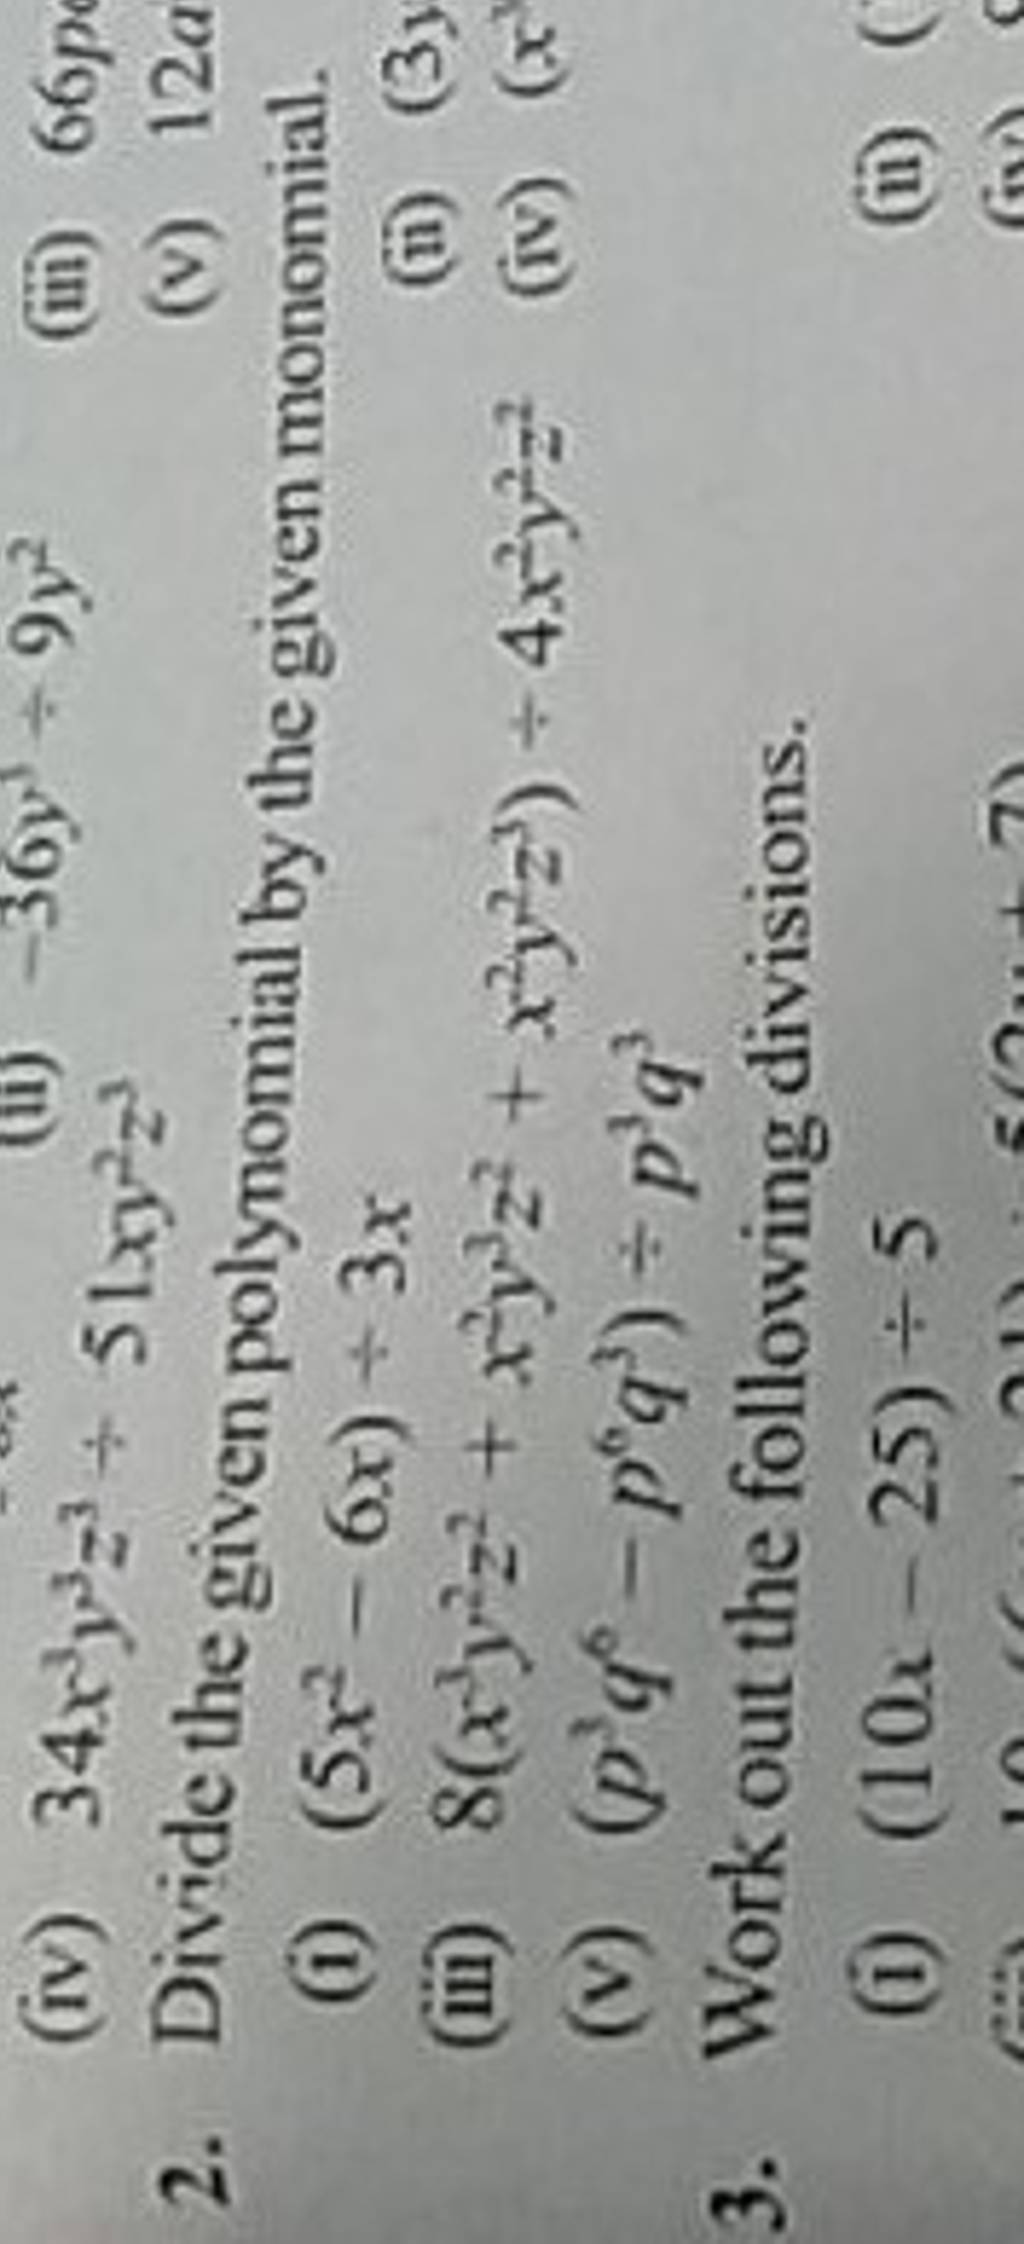 (ii) −36y³ ÷ 9y² (iii) 66p
(iv) 34x³y³z³ ÷ 51xy²z³ (v) 12a
2. Divide the given polynomial by the given monomial.
(i) (5x² − 6x) ÷ 3x (ii) (3y
(iii) 8(x³y²z² + x²y³z² + x²y²z³) ÷ 4x²y²z² (iv) (x
(v) (p³q⁶ − p⁶q³) ÷ p³q³
3. Work out the following divisions.
(i) (10x − 25) ÷ 5 (ii) (